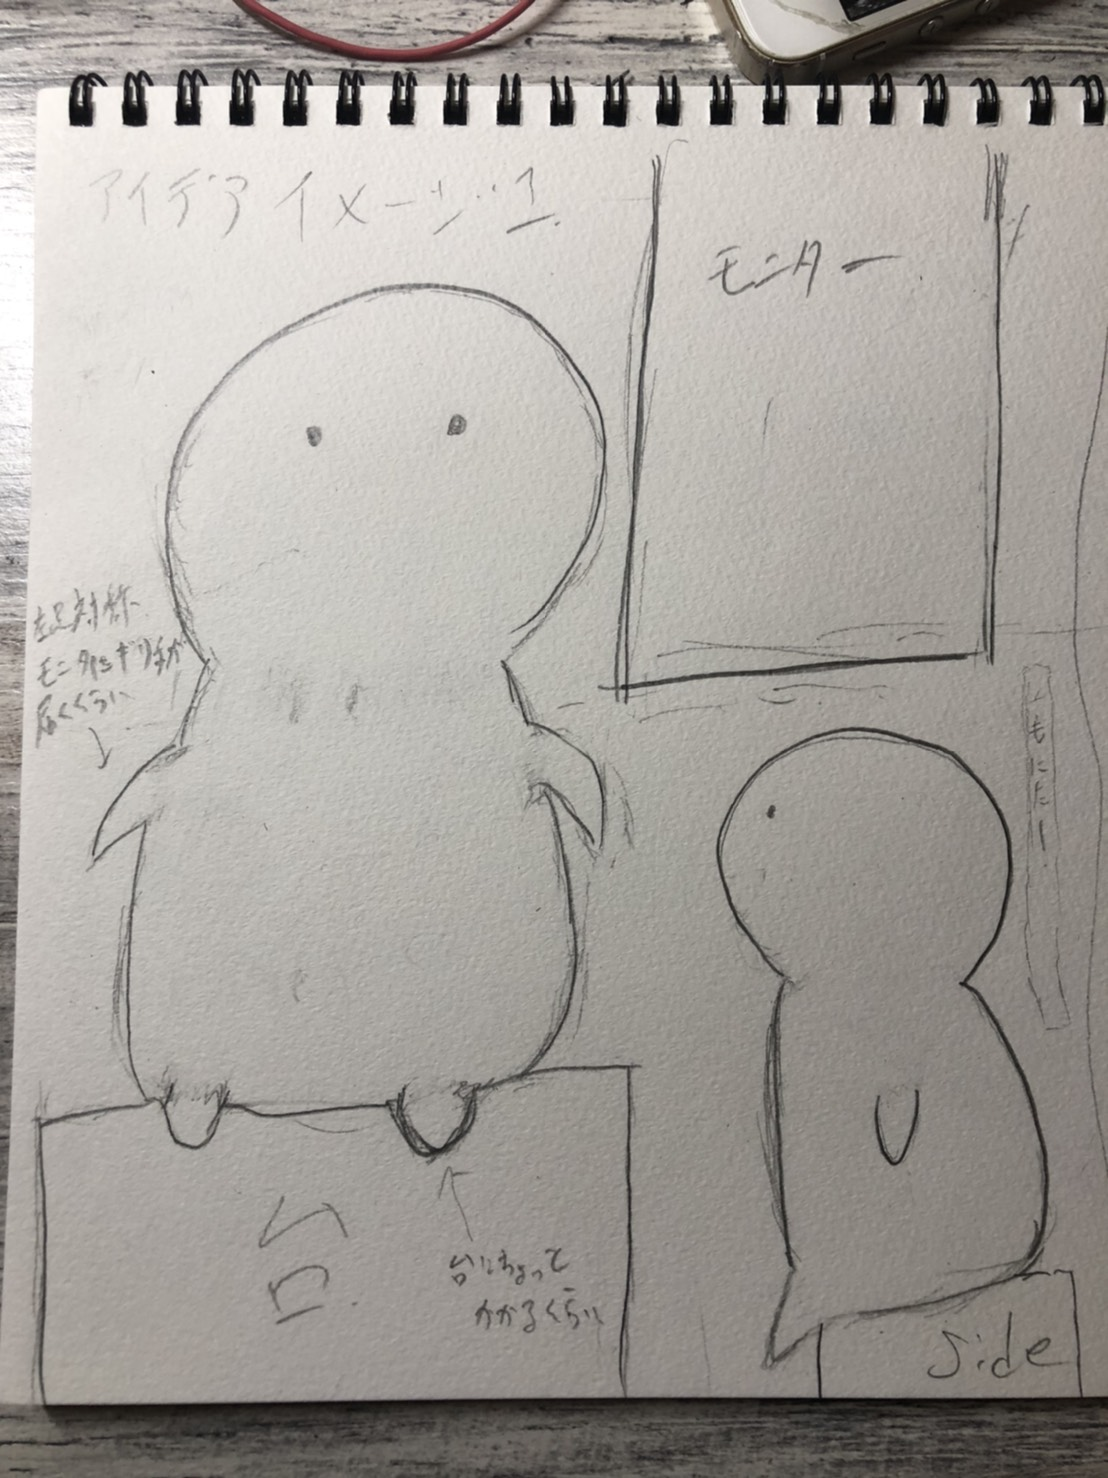 アイデアイメージ1.
モニター
左足対称
モニタにギリ手が
届くくらい
もにたー
台
台にちょって
かかるくらい
side